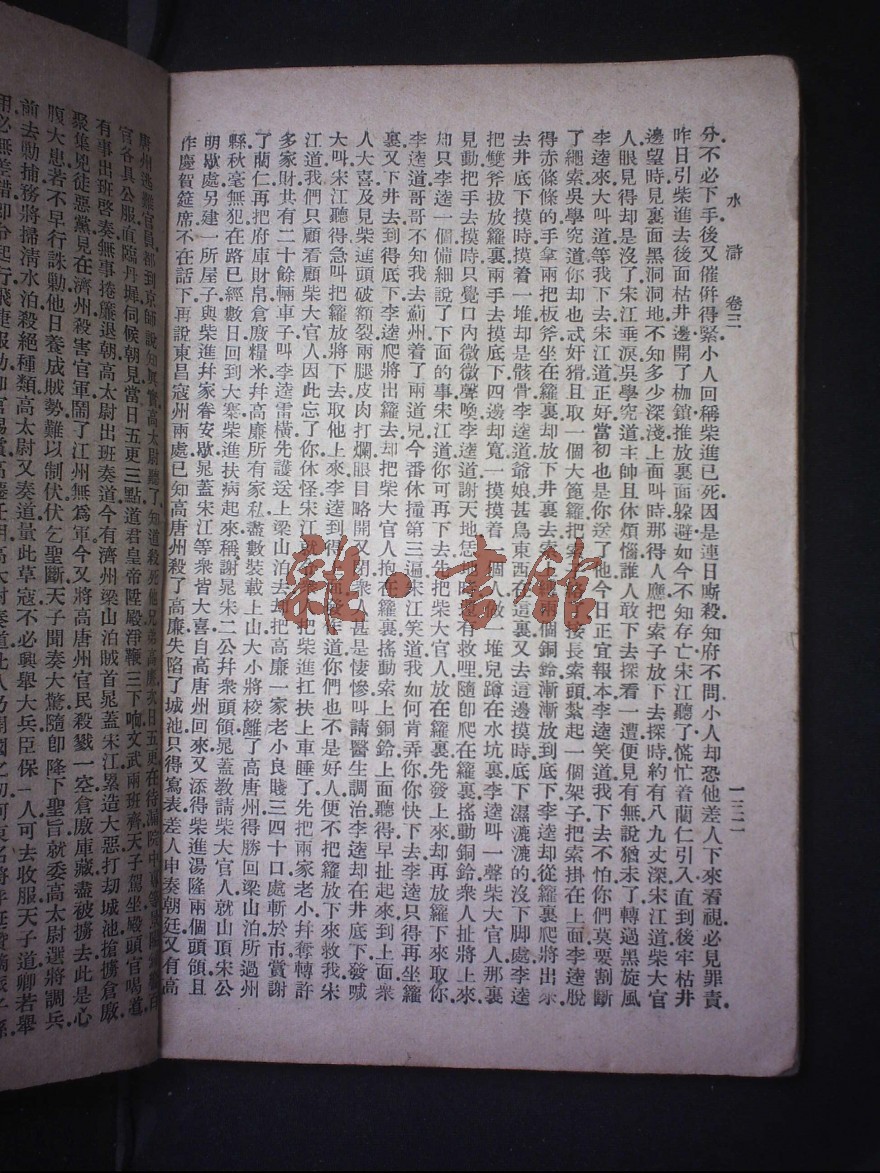 水滸 卷三 一三二
分不必下手後又催倂得緊小人回稱柴進已死因是連日厮殺知府不問小人却恐他差人下來看視必見罪責
昨日引柴進去後面枯井邊開了枷鎖推放裏面躱避如今不知存亡宋江聽了慌忙着藺仁引入直到後牢枯井
邊望時見裏面黑洞洞地不知多少深淺上面叫時那得人應把索子放下去探時約有八九丈深宋江道柴大官
人眼見得却是沒了宋江垂淚吳學究道主帥且休煩惱誰人敢下去探看一遭便見有無說猶未了轉過黑旋風
李逵來大叫道等我下去宋江道正好當初也是你送了他今日正宜報本李逵笑道我下去不怕你們莫要割斷
了繩索吳學究道你却也忒奸猾且取一個大篾籮把索 子 接長索頭紥起一個架子把索掛在上面李逵脫
得赤條條的手拿兩把板斧坐在籮裏却放下井裏去索上 兩個銅鈴漸漸放到底下李逵却從籮裏爬將出來
去井底下摸時摸着一堆却是骸骨李逵道爺娘甚鳥東西在這裏又去這邊摸時底下濕漉漉的沒下脚處李逵
把雙斧拔放籮裏兩手去摸底下四邊却寬一摸摸着一個人做一堆兒蹲在水坑裏李逵叫一聲柴大官人那裏
見動把手去摸時只覺口內微微聲喚李逵道謝天地恁地時還有救哩隨卽爬在籮裏搖動銅鈴衆人扯將上來
却只李逵一個備細說了下面的事宋江道你可再下去先把柴大官人放在籮裏先發上來却再放籮下來取你
李逵道哥哥不知我去薊州着了兩道兒今番休撞第三遍宋江笑道我如何肯弄你你快下去李逵只得再坐籮
裏又下井去到得底下李逵爬將出籮去却把柴大官人抱在籮裏搖動索上銅鈴上面聽得早扯起來到上面衆
人大喜及見柴進頭破額裂兩腿皮肉打爛眼目略開又閉衆人甚是悽慘叫請醫生調治李逵却在井底下發喊
大叫宋江聽得急叫把籮放將下去取他上來李逵到得上面發作道你們也不是好人便不把籮放下來救我宋
江道我們只顧看顧柴大官人因此忘了你休怪宋江就 把柴進扛扶上車睡了先把兩家老小幷奪轉許
多家財共有二十餘輛車子叫李逵雷橫先護送上梁山泊去却把高廉一家老小良賤三四十口處斬於市賞謝
了藺仁再把府庫財帛倉廒糧米幷高廉所有家私盡數裝載上山大小將校離了高唐州得勝回梁山泊所過州
縣秋毫無犯在路已經數日回到大寨柴進扶病起來稱謝晁宋二公幷衆頭領晁蓋教請柴大官人就山頂宋公
明歇處另建一所屋子與柴進幷家眷安歇晁蓋宋江等衆皆大喜自高唐州回來又添得柴進湯隆兩個頭領且
作慶賀筵席不在話下再說東昌寇州兩處已知高唐州殺了高廉失陷了城池只得寫表差人申奏朝廷又有高
唐州逃難官員都到京師說知眞實高太尉聽了知道殺死他兄弟高廉次日五更在待漏院中專等
官各具公服直臨丹墀伺候朝見當日五更三點道君皇帝陞殿淨鞭三下响文武兩班齊天子駕坐殿頭官喝道
有事出班啓奏無事捲簾退朝高太尉出班奏道今有濟州梁山泊賊首晁蓋宋江累造大惡打刼城池搶擄倉廒
聚集兇徒惡黨見在濟州殺害官軍鬧了江州無爲軍今又將高唐州官民殺戮一空倉廒庫藏盡被擄去此是心
腹大患若不早行誅勦他日養成賊勢難以制伏伏乞聖斷天子聞奏大驚隨卽降下聖旨就委高太尉選將調兵
前去勦捕務將掃清水泊殺絕種類高太尉又奏道量此草寇不必興舉大兵臣保一人可去收服天子道卿若舉
用必無差錯卽
雜·書館